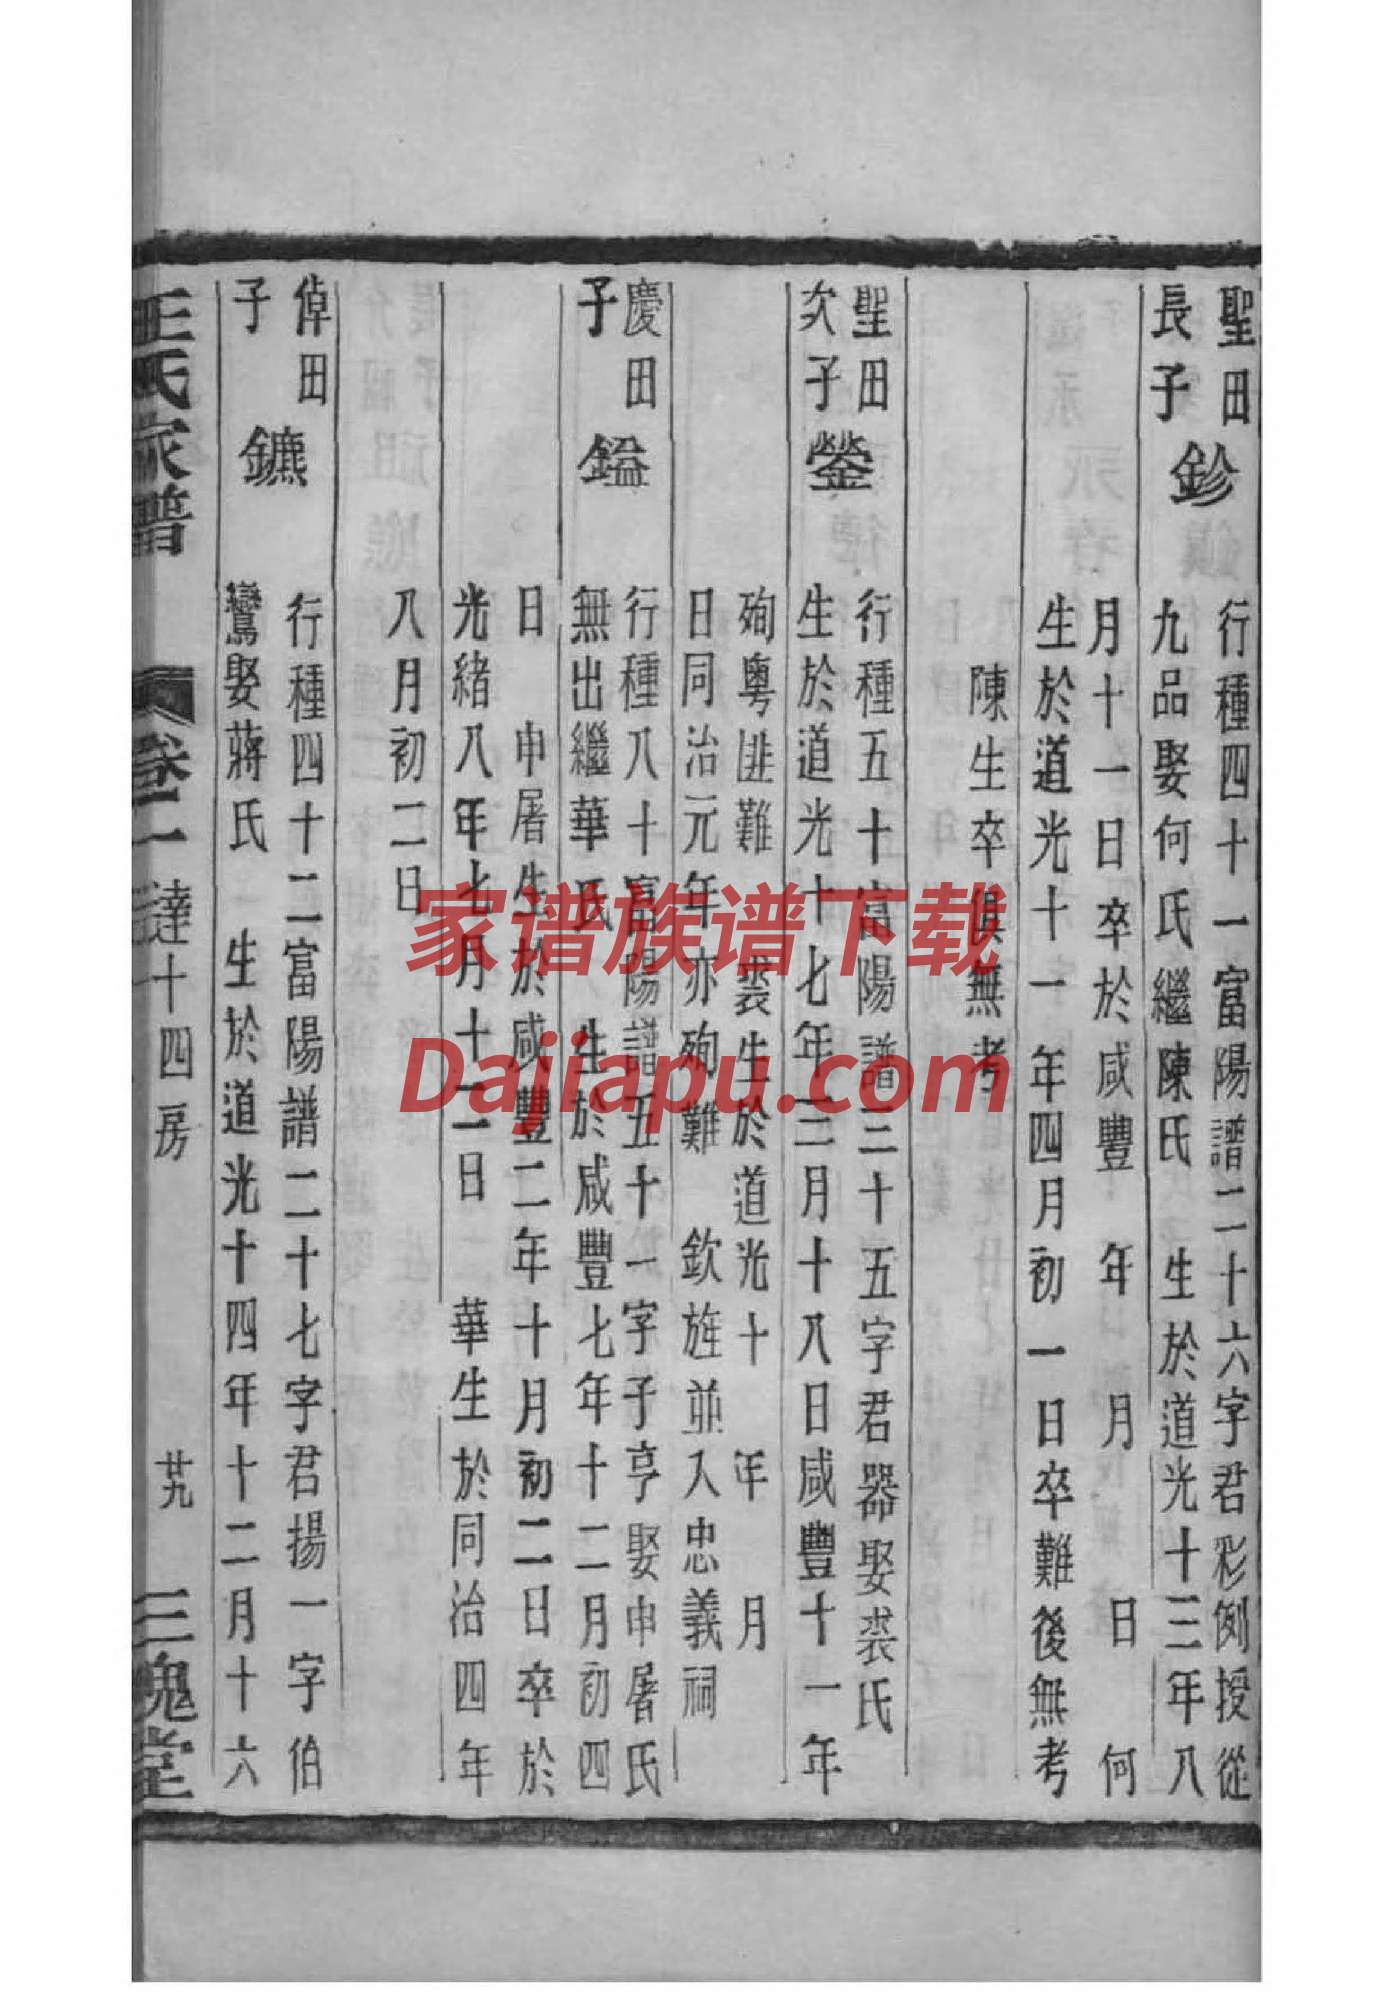 聖田
長子
鉁
行種四十一富陽譜二十六字君彩例授從
九品娶何氏繼陳氏 生於道光十三年八
月十一日卒於咸豐 年 月 日 何
生於道光十一年四月初一日卒難後無考
陳生卒俱無考
聖田
次子
鎣
行種五十富陽譜三十五字君器娶裘氏
生於道光十七年三月十八日咸豐十一年
殉粵匪難 裘生於道光十 年 月
日同治元年亦殉難 欽旌並入忠義祠
慶田
子
鎰
行種八十富陽譜五十一字子亨娶申屠氏
無出繼華氏 生於咸豐七年十二月初四
日 申屠生於咸豐二年十月初二日卒於
光緒八年七月十一日 華生於同治四年
八月初二日
倬田
子
鑣
行種四十二富陽譜二十七字君揚一字伯
鸞娶蔣氏 生於道光十四年十二月十六
王氏家譜 卷二 達十四房 廿九 三槐堂
家谱族谱下载
Dajiapu.com